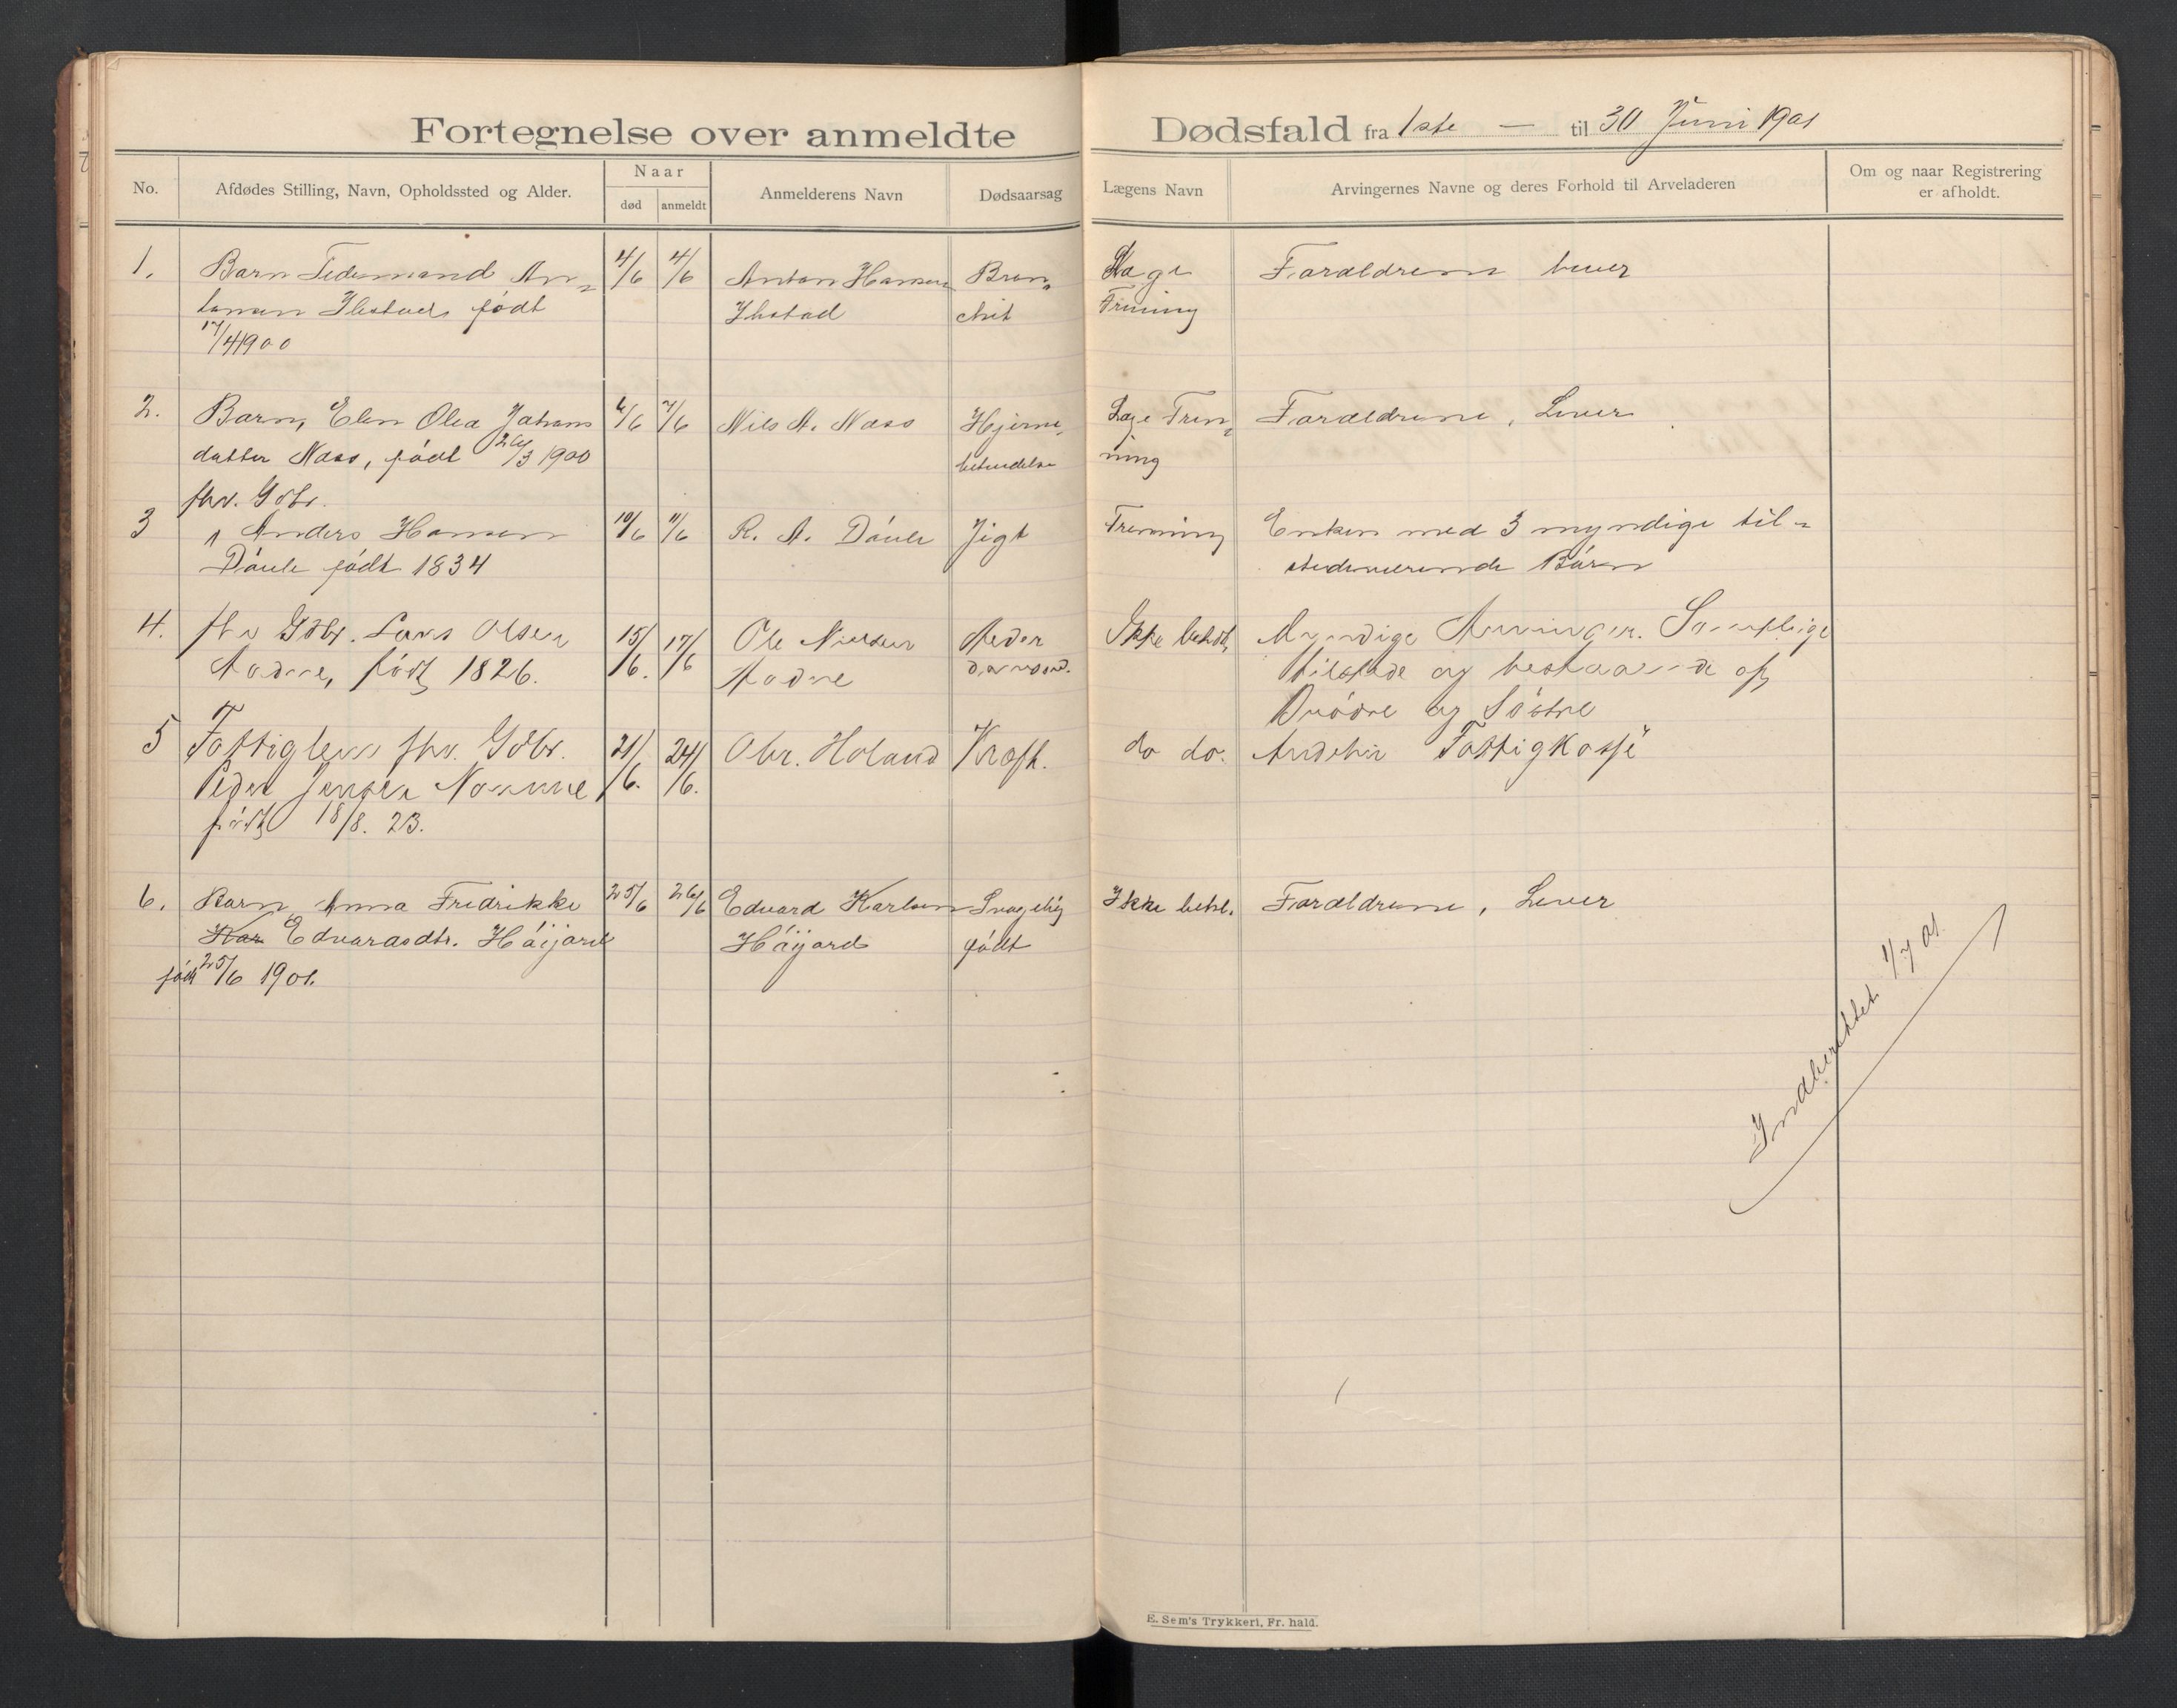 Fortegnelse over anmeldte Dødsfald fra 1ste — til 30 Juni 1901
No. Afdødes Stilling, Navn, Opholdssted og Alder. Naar død anmeldt Anmelderens Navn Dødsaarsag Lægens Navn Arvingernes Navne og deres Forhold til Arveladeren Om og naar Registrering er afholdt.
1. Barn Tedemand An= 4/6 4/6 Anton Hansen Bron= Læge Forældrene lever
tonsen Ihlstad født Ihstad chit Trening
17/4 1900
2. Barn, Elen Olea Johans 6/6 7/6 Nils A. Næss Hjerne= Læge Tren= Forældrene, Lever
datter Næss, født 26/3 1900 betændelse ning
fhv. Gdbr.
3 Anders Hansen 10/6 11/6 R. A. Døule Jigt Trenning Enken med 3 myndige til=
Døule født 1834 stedeværende Børn
4. fhv Gdbr. Lars Olsen 15/6. 17/6 Ole Nielsen Ikke behdl, Myndige Arvinger. Samtlige
Aadne, født 1826. Aadne tilstede og bestaaende af
Brødre og Søstre
5 Fattiglem fhv. Gdbr. 21/6. 24/6. Chr. Holand Kræft. do do. Fattigkasse
Peder Jensen
født 18/8. 23.
6. Barn Anna Fredrikke 25/6 26/6 Edvard Karlsen Svagelig Ikke behdl. Forældrene, Lever
Kar Edvardsdtr. Høijord Høijord født
født 25/6 1901.
Indberettet 1/7 01.
E. Sem's Trykkeri, Fr. hald.